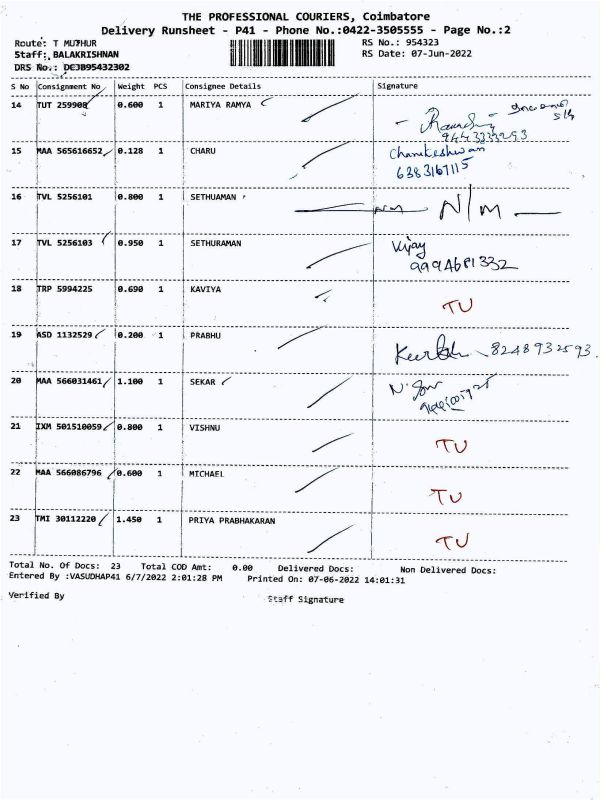 THE PROFESSIONAL COURIERS, Coimbatore
Delivery Runsheet - P41 - Phone No.:0422-3505555 - Page No.:2
Route: T MUTHUR RS No.: 954323
Staff: BALAKRISHNAN RS Date: 07-Jun-2022
DRS No.: DEJB95432302
S No Consignment No Weight PCS Consignee Details Signature
14 TUT 259908 0.600 1 MARIYA RAMYA
9443233293
15 MAA 565616652 0.128 1 CHARU
6383167115
16 TVL 5256101 0.800 1 SETHUAMAN N/M
17 TVL 5256103 0.950 1 SETHURAMAN Vijay
9994681332
18 TRP 5994225 0.690 1 KAVIYA TU
19 ASD 1132529 0.200 1 PRABHU 8248932593.
20 MAA 566031461 1.100 1 SEKAR
21 IXM 501510059 0.800 1 VISHNU TU
22 MAA 566086796 0.600 1 MICHAEL TU
23 TMI 30112220 1.450 1 PRIYA PRABHAKARAN TU
Total No. Of Docs: 23 Total COD Amt: 0.00 Delivered Docs: Non Delivered Docs:
Entered By :VASUDHAP41 6/7/2022 2:01:28 PM Printed On: 07-06-2022 14:01:31
Verified By Staff Signature